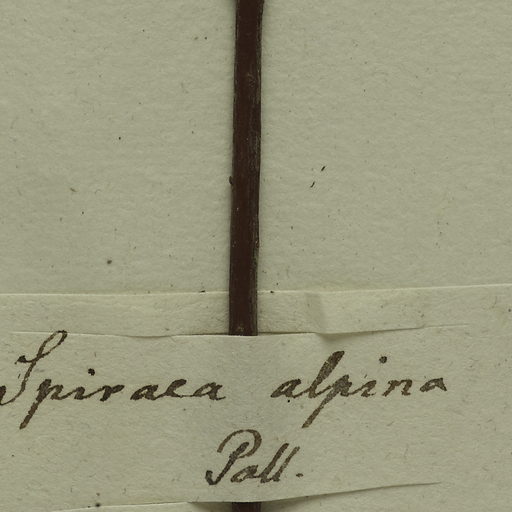 Spiraea alpina
Pall.